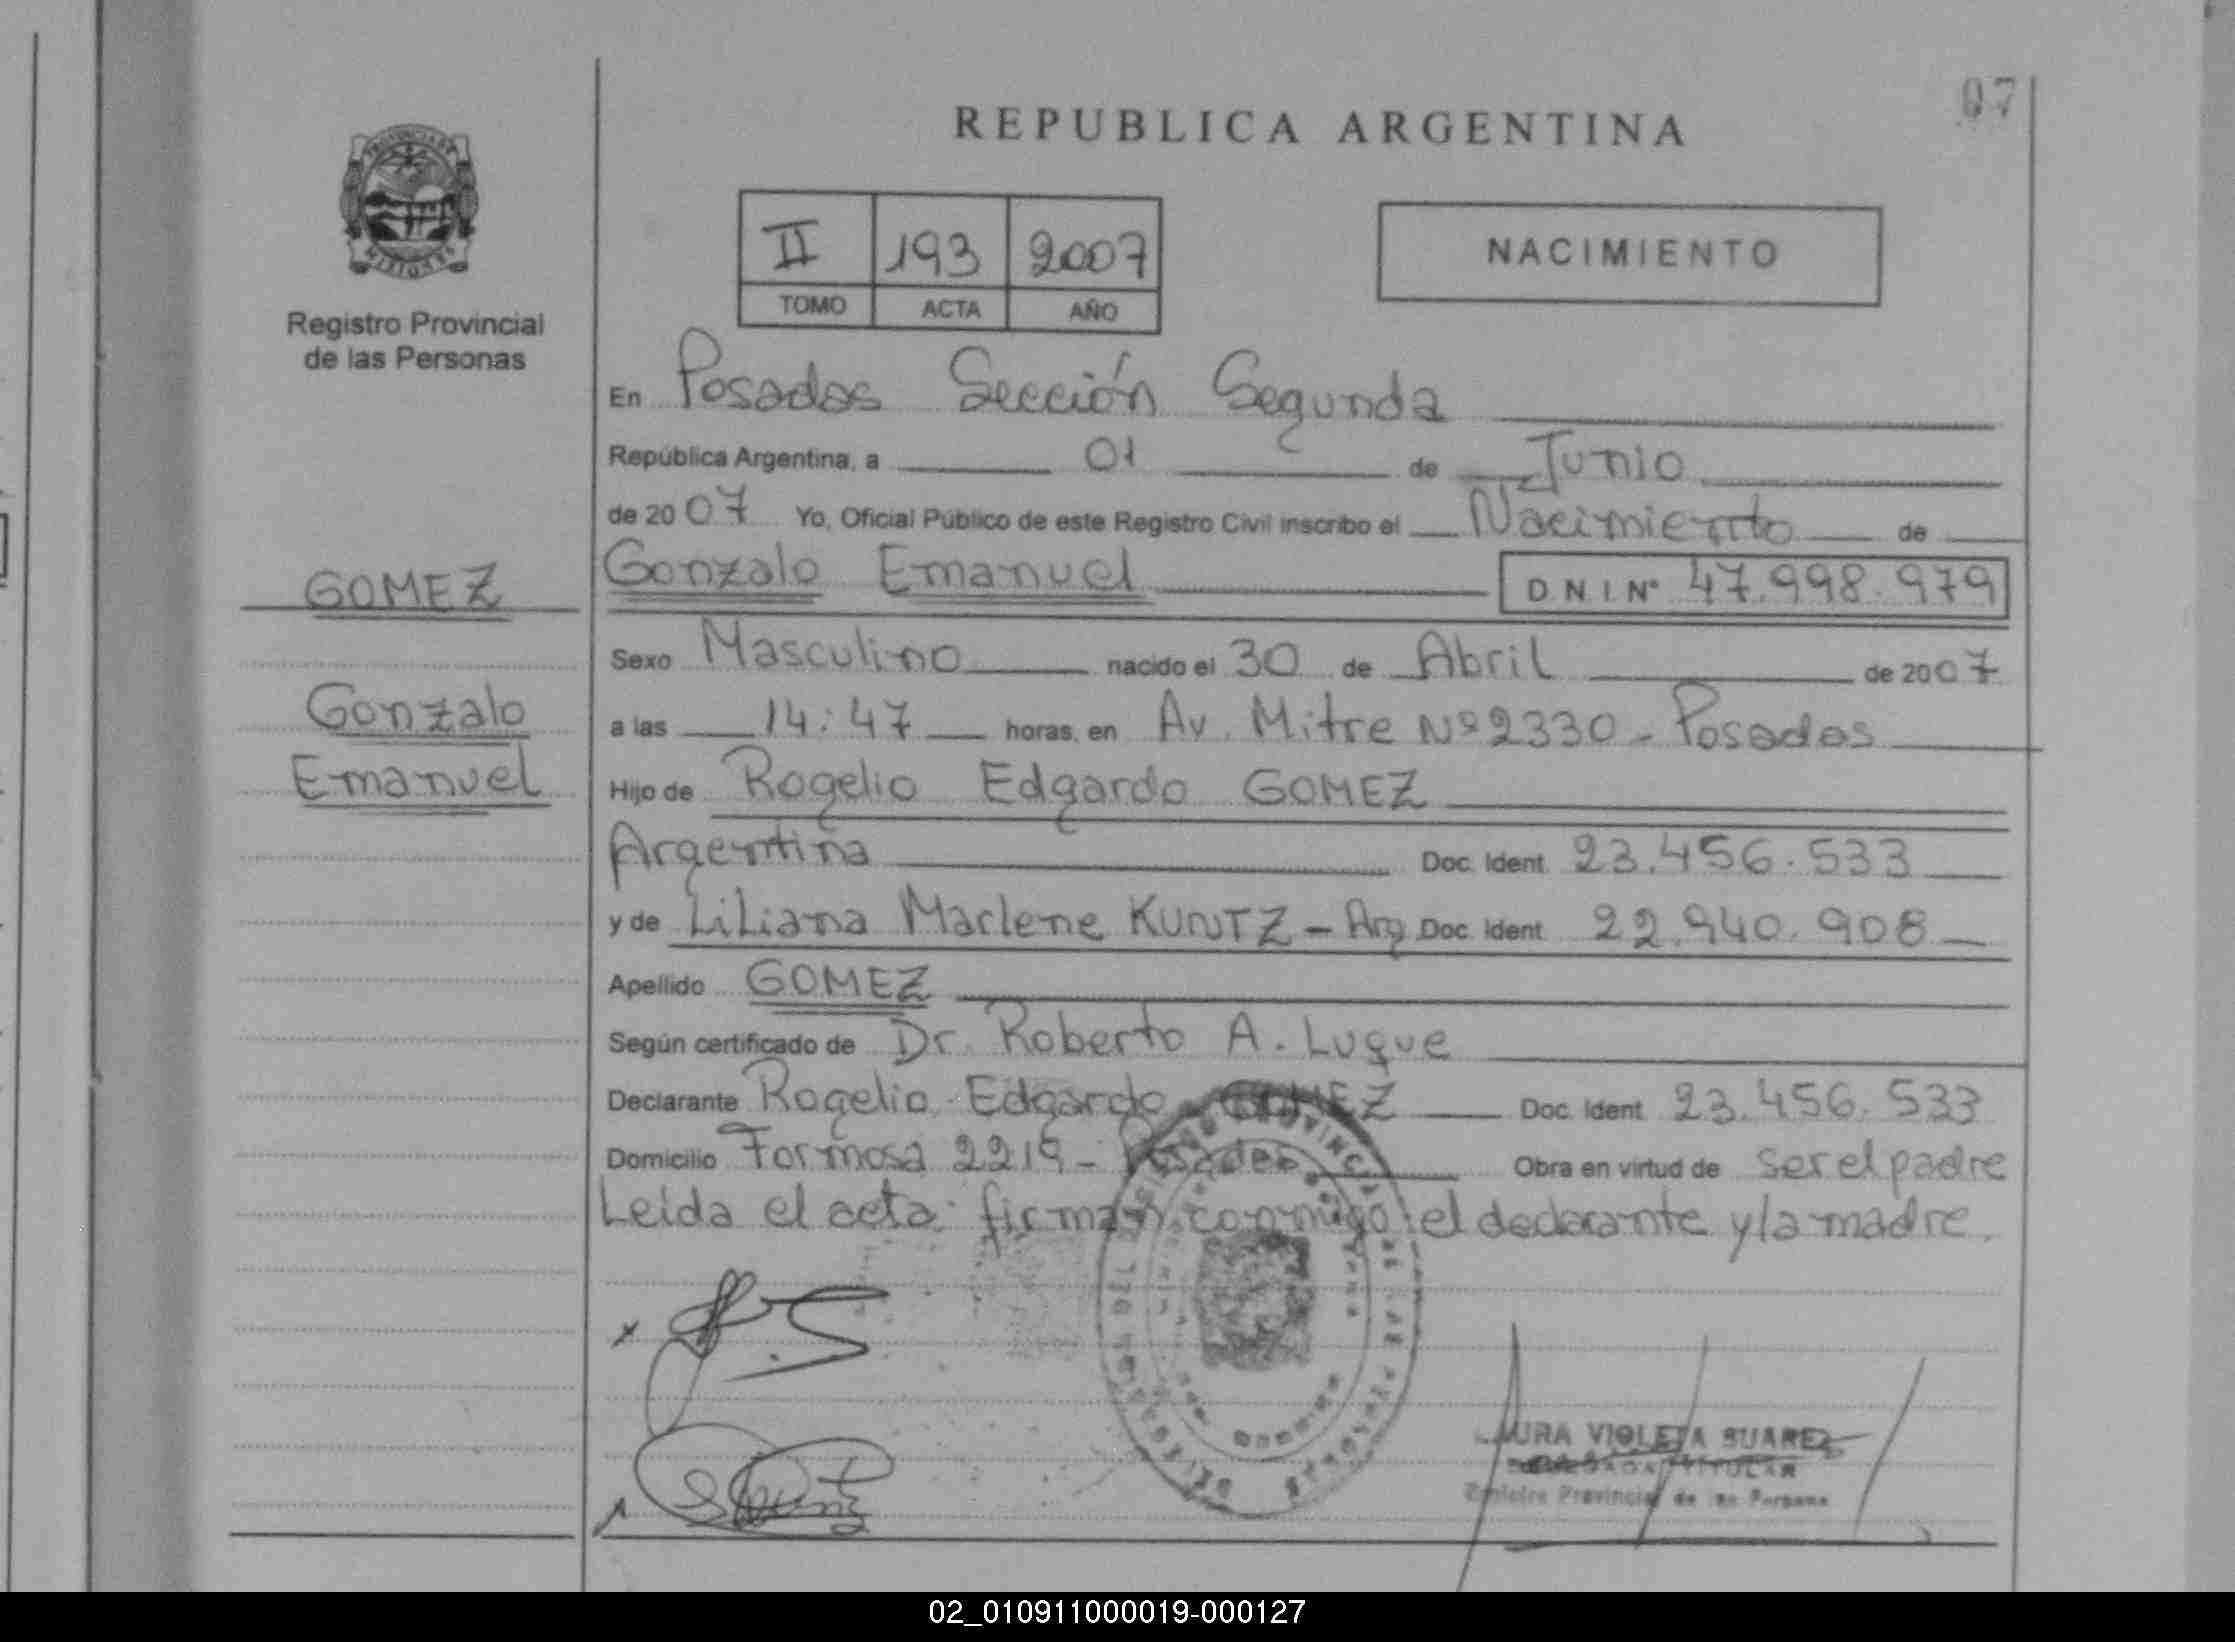 97
REPUBLICA ARGENTINA
PROVINCIA DE
MISIONES
Registro Provincial
de las Personas
II 193 2007
TOMO ACTA AÑO
NACIMIENTO
En Posadas Sección Segunda
República Argentina, a 01 de Junio
de 2007 Yo, Oficial Público de este Registro Civil inscribo el Nacimiento de
GOMEZ
Gonzalo
Emanuel
Gonzalo Emanuel D.N.I.Nº 47.998.979
Sexo Masculino nacido el 30 de Abril de 2007
a las 14:47 horas, en Av. Mitre Nº 2330 - Posadas
Hijo de Rogelio Edgardo GOMEZ
Argentina Doc. Ident. 23.456.533
y de Liliana Marlene KUNTZ - Arg Doc. Ident. 22.940.908
Apellido GOMEZ
Según certificado de Dr. Roberto A. Luque
Declarante Rogelio Edgardo GOMEZ Doc. Ident. 23.456.533
Domicilio Formosa 2219 - Posadas Obra en virtud de ser el padre
Leida el acta firman conmigo el declarante y la madre.
LAURA VIOLETA SUAREZ
DELEGADA TITULAR
Registro Provincial de las Personas
02_010911000019-000127